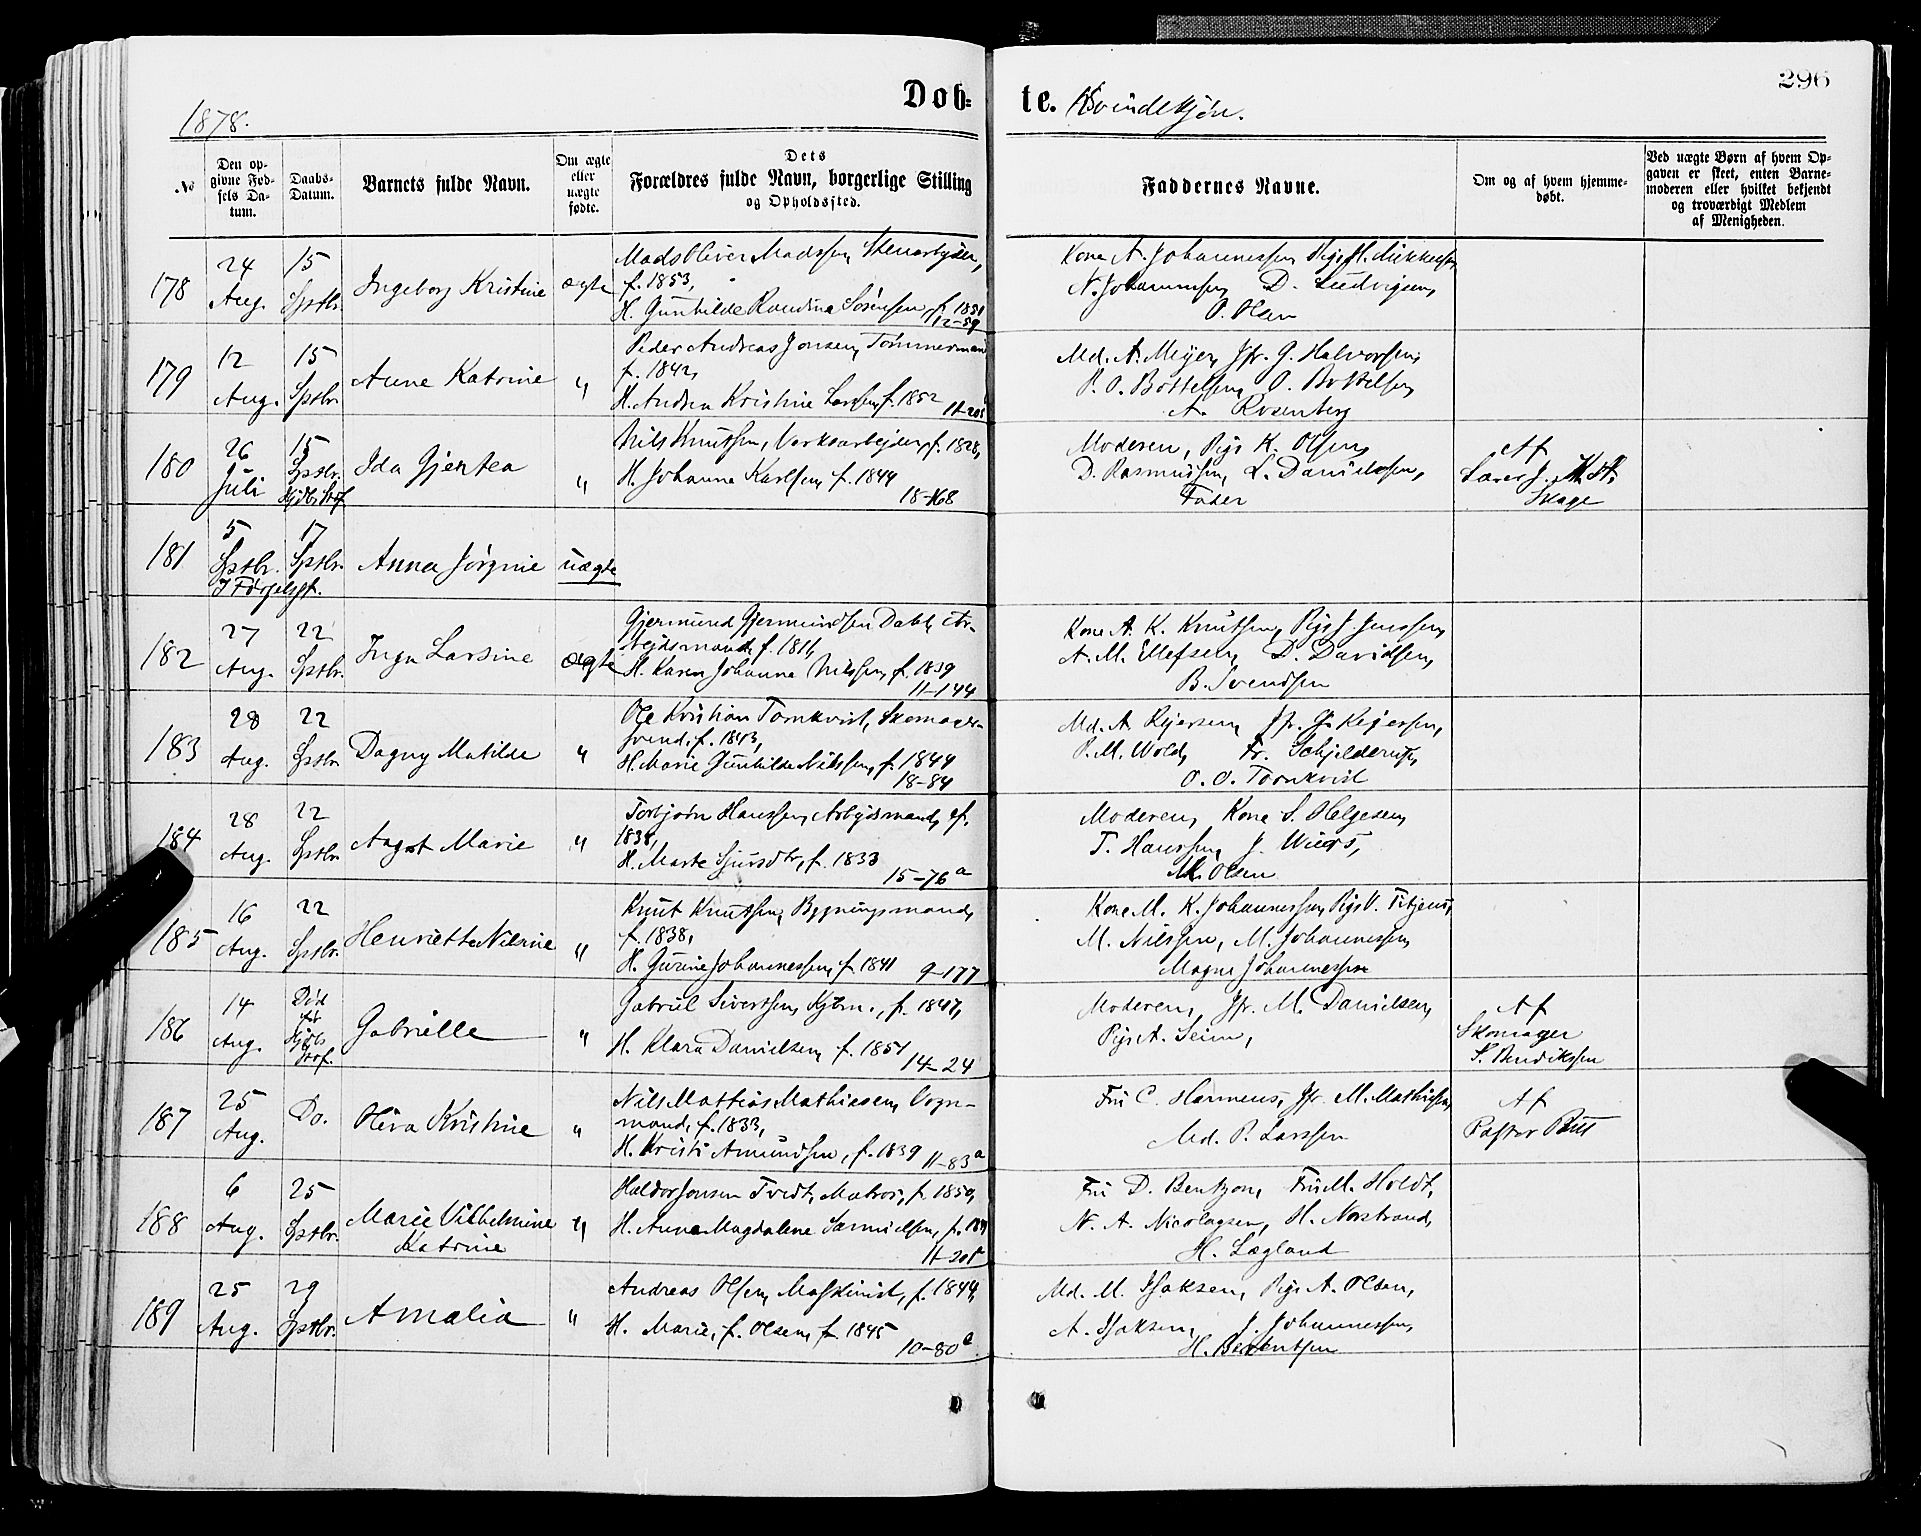 296
1878.
Døb-
te. Kvindekjøn.
№
Den op-
givne Fød-
sels Da-
tum.
Daabs-
Datum.
Barnets fulde Navn.
Om ægte
eller
uægte
fødte.
Dets
Forældres fulde Navn, borgerlige Stilling
og Opholdssted.
Faddernes Navne.
Om og af hvem hjemme-
døbt.
Ved uægte Børn af hvem Op-
gaven er skeet, enten Barne-
moderen eller hvilket bekjendt
og troværdigt Medlem
af Menigheden.
178
24
Aug.
15
Sptbr.
Ingeborg Kristine
ægte
Mads Oliver Madssen, Stenarbyder,
f. 1853,
H. Gunhilde Randina Sørensen, f. 1851
12-59
Kone A. Johannessen, Pige
N. Johannesen, D. Ludvigsen,
O. Olsen
179
12
Aug.
15
Sptbr.
Anne Katrine
"
Peder Andreas Jonsen, Tømmermand
f. 1842,
H. Andrea Kristine Larsen, f. 1852
Md. A. Meyer, Jfr. G. Halvorsen,
P. O. Bottelsen, O. Bottelsen,
A. Rosenberg
180
26
Juli
15
Sptbr.
Ida Gjertea
"
Nils Knutsen, Verksarbejder, f. 1828,
H. Johanna Karlsen, f. 1849
18-168
Moderen, Pige K. Olsen,
D. Rasmussen, L. Danielssen,
Fader
Af
Lærer J.
Skage
181
5
Sptbr.
17
Sptbr.
Anna Jørgine
uægte
182
27
Aug.
22
Sptbr.
Inga Larsine
ægte
Gjermund Gjermundsen Dahl, Ar-
bejdsmand, f. 1811,
H. Karen Johanna Nilssen, f. 1839
11-144
Kone A. K. Knutsen, Pige J. Jenssen,
A. M. Ellefsen, D. Davidsen,
B. Svendsen
183
28
Aug.
22
Sptbr.
Dagny Matilde
"
Ole Kristian Tornkvist, Skomager-
svend, f. 1843,
H. Marie Gunhilde Nilssen, f. 1849
18-84
Md. A. Rejersen, Jfr. G. Rejersen,
P. M. Wold, Fr. Schjelderup,
O. O. Tornkvist
184
28
Aug.
22
Sptbr.
Aagot Marie
"
Torbjørn Hanssen, Arbejdsmand, f.
1838,
H. Marte Sjursdtr, f. 1833
15-76 a
Moderen, Kone S. Helgesen,
T. Hanssen, J. Wiers,
M. Olsen
185
16
Aug.
22
Sptbr.
Henriette Nilsine
"
Knut Knutsen, Bygningsmand,
f. 1838,
H. Gurine Johannessen, f. 1841
9-177
Kone M. K. Johannessen, Pige V. Titjens,
M. Nilssen, M. Johannessen
Magne Johannessen
186
14
Aug.
Død
Gabrielle
"
Gabriel Sivertsen, Kjbm., f. 1847,
H. Klara Danielsen, f. 1851
14-24
Moderen, Jfr. M. Danielsen,
Pige A. Seim,
Af
Skomager
S. Bendikssen
187
25
Aug.
Do.
Oliva Kristine
"
Nils Mattias Mathiasen, Vogn-
mand, f. 1833,
H. Kristi Amundsen, f. 1839
11-83 a
Fru C. Harmens, Jfr. M. Mathiesen,
Md. P. Larssen
Af
Pastor
188
6
Aug.
25
Sptbr.
Marie Vilhelmine
Katrine
"
Haldor Jonsen Tvedt, Matros, f. 1850,
H. Anna Magdalene Samuelsen,
Fru D. Bentzon, Fru M. Holdt,
N. A. Nicolaysen, H. Norstrand,
H. Lægland
189
25
Aug.
29
Sptbr.
Amalia
"
Andreas Olsen, Maskinist, f. 1844,
H. Marie, f. Olsen, f. 1845
10-80
Md. M. Isaksen, Pige A. Olsen,
A. Isaksen, J. Johannessen,
H. Berentsen